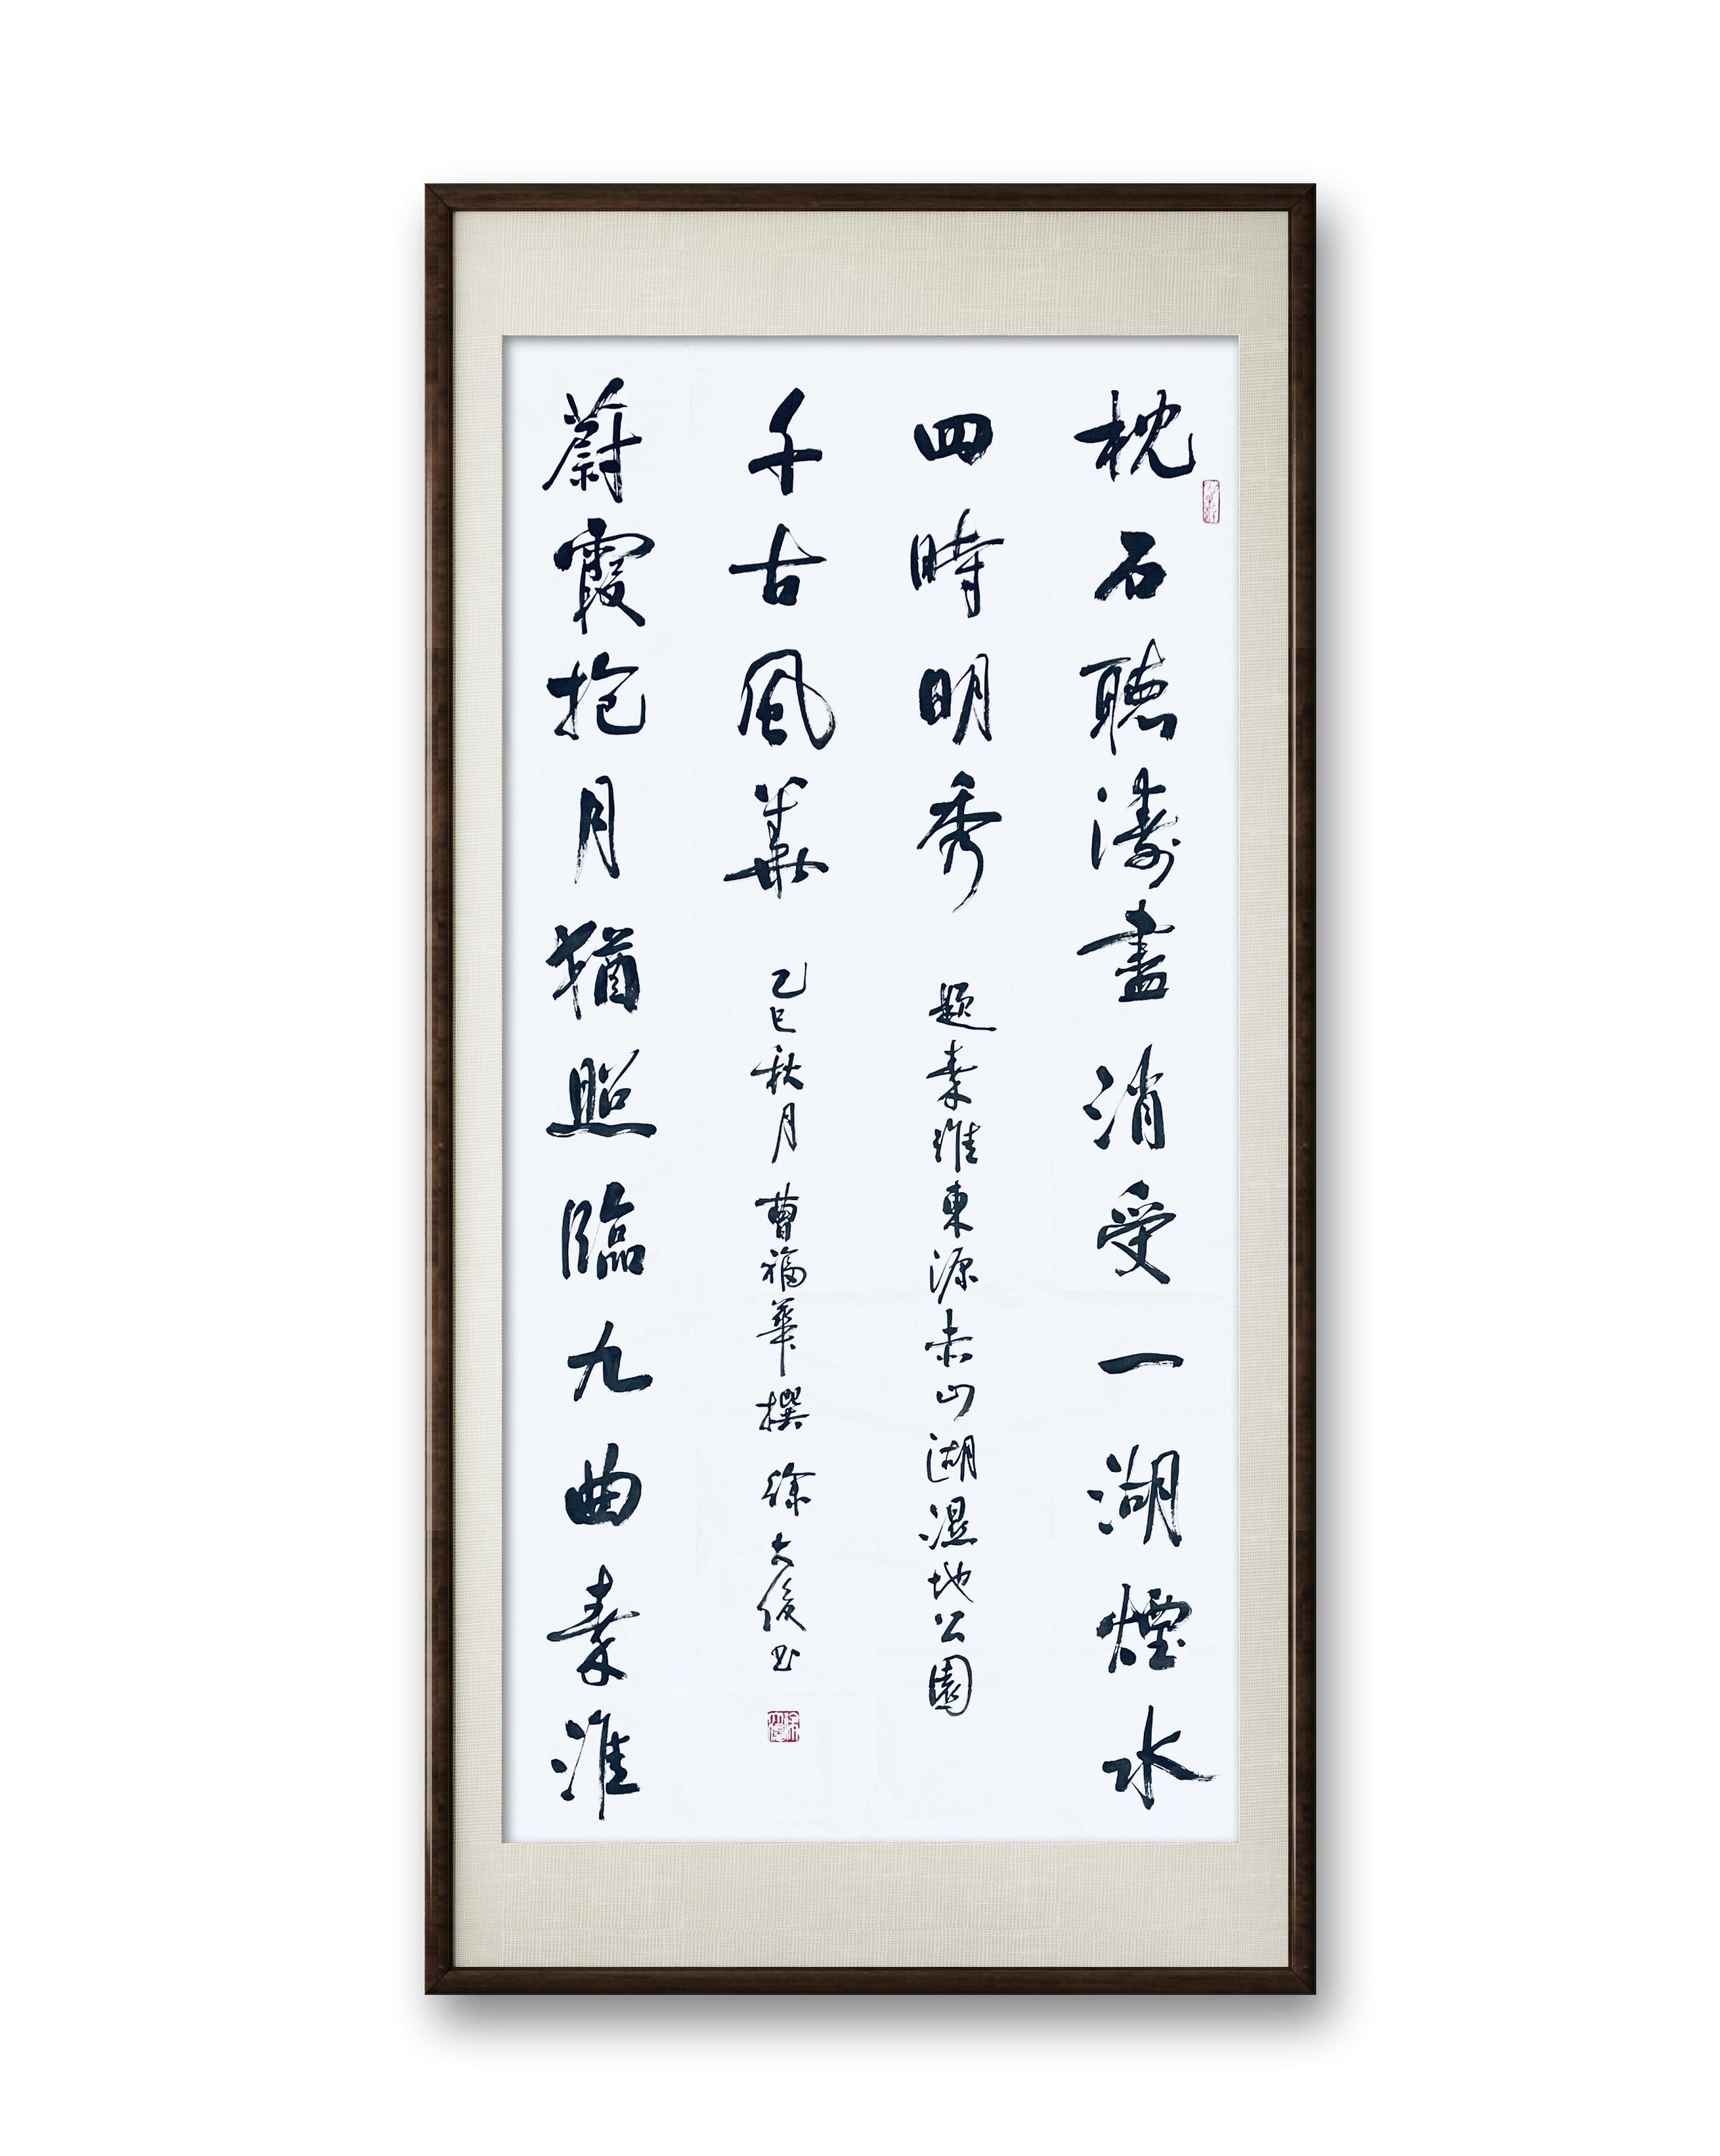 枕石聽濤盡消受一湖煙水
四時明秀
題秦淮東源赤山湖濕地公園
蔚霞抱月猶照臨九曲秦淮
千古風華
乙巳秋月 曹福華撰 徐大俊书